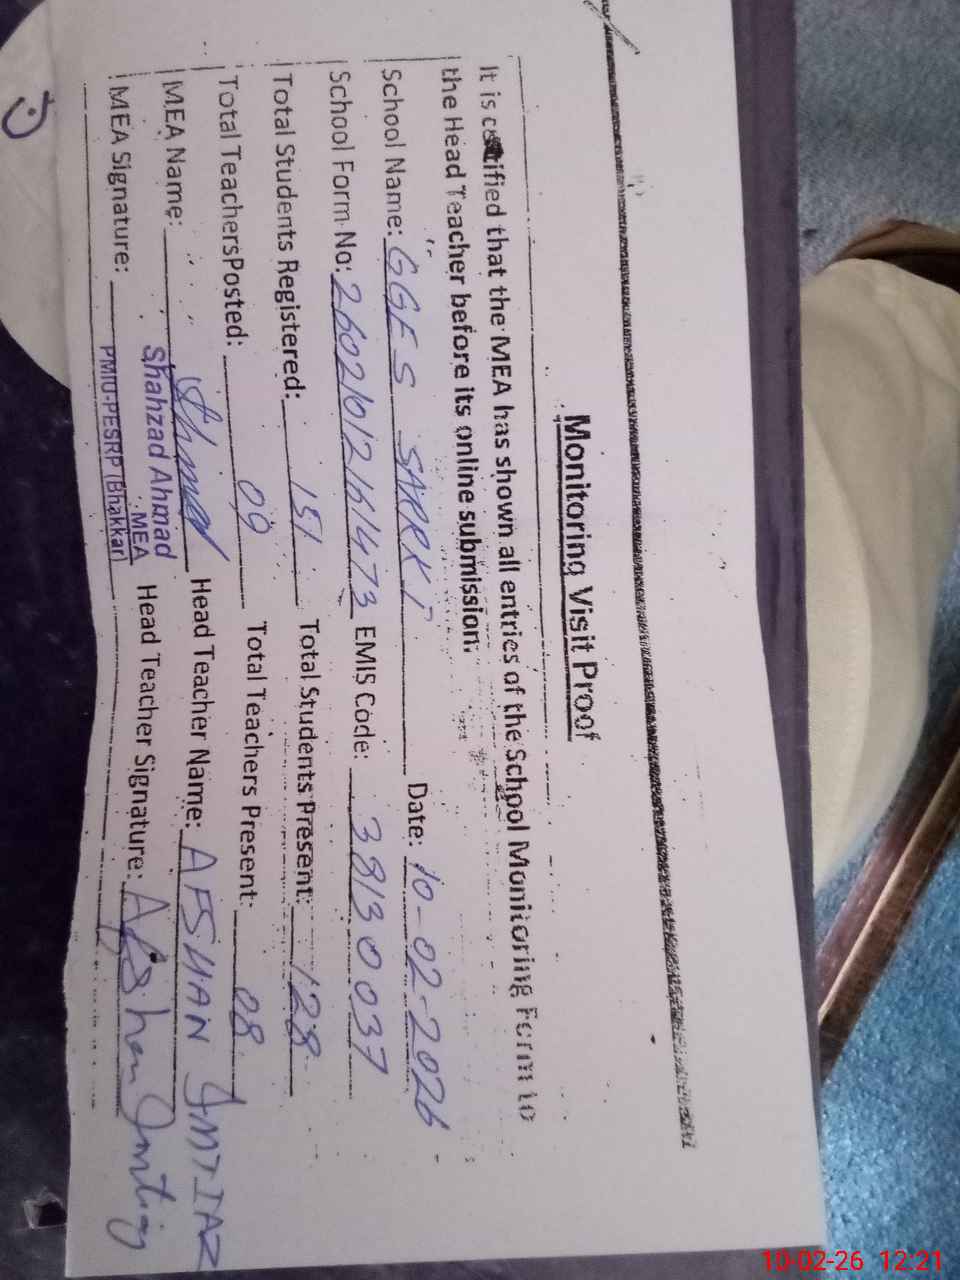 Monitoring Visit Proof
It is certified that the MEA has shown all entries of the School Monitoring Form to
the Head Teacher before its online submission.
School Name: GGES SARRKI Date: 10-02-2026
School Form No: 26021012161473 EMIS Code: 38130037
Total Students Registered: 151 Total Students Present: 128
Total TeachersPosted: 09 Total Teachers Present: 08
MEA Name: Ahmad Head Teacher Name: AFSHAN IMTIAZ
Shahzad Ahmad
MEA
MEA Signature: PMIU-PESRP (Bhakkar) Head Teacher Signature: Afshan Imtiaz
10-02-26 12:21